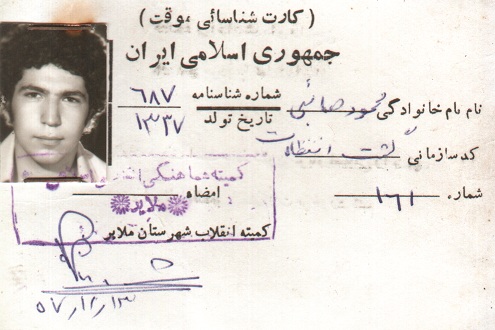 ( کارت شناسائی موقت )
جمهوری اسلامی ایران
نام نام خانوادگی محمود صائبی شماره شناسنامه ۶۸۷
تاریخ تولد ۱۳۳۷
کد سازمانی گشت انتظامات
شماره . ۱۶۱ امضاء
کمیته هماهنگی
ملایر
کمیته انقلاب شهرستان ملایر
۵۷/۱۲/۱۳